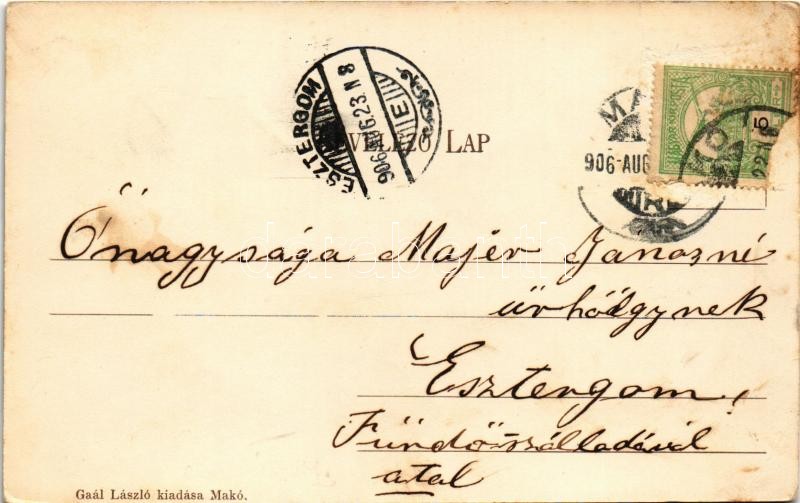 ESZTERGOM
906 AUG 23. N 8
E
LEVELEZŐ LAP
906 AUG
5
Őnagysága Majér Janosné
úrhölgynek
Esztergom!
Fürdőszállodával
atal
Gaál László kiadása Makó.